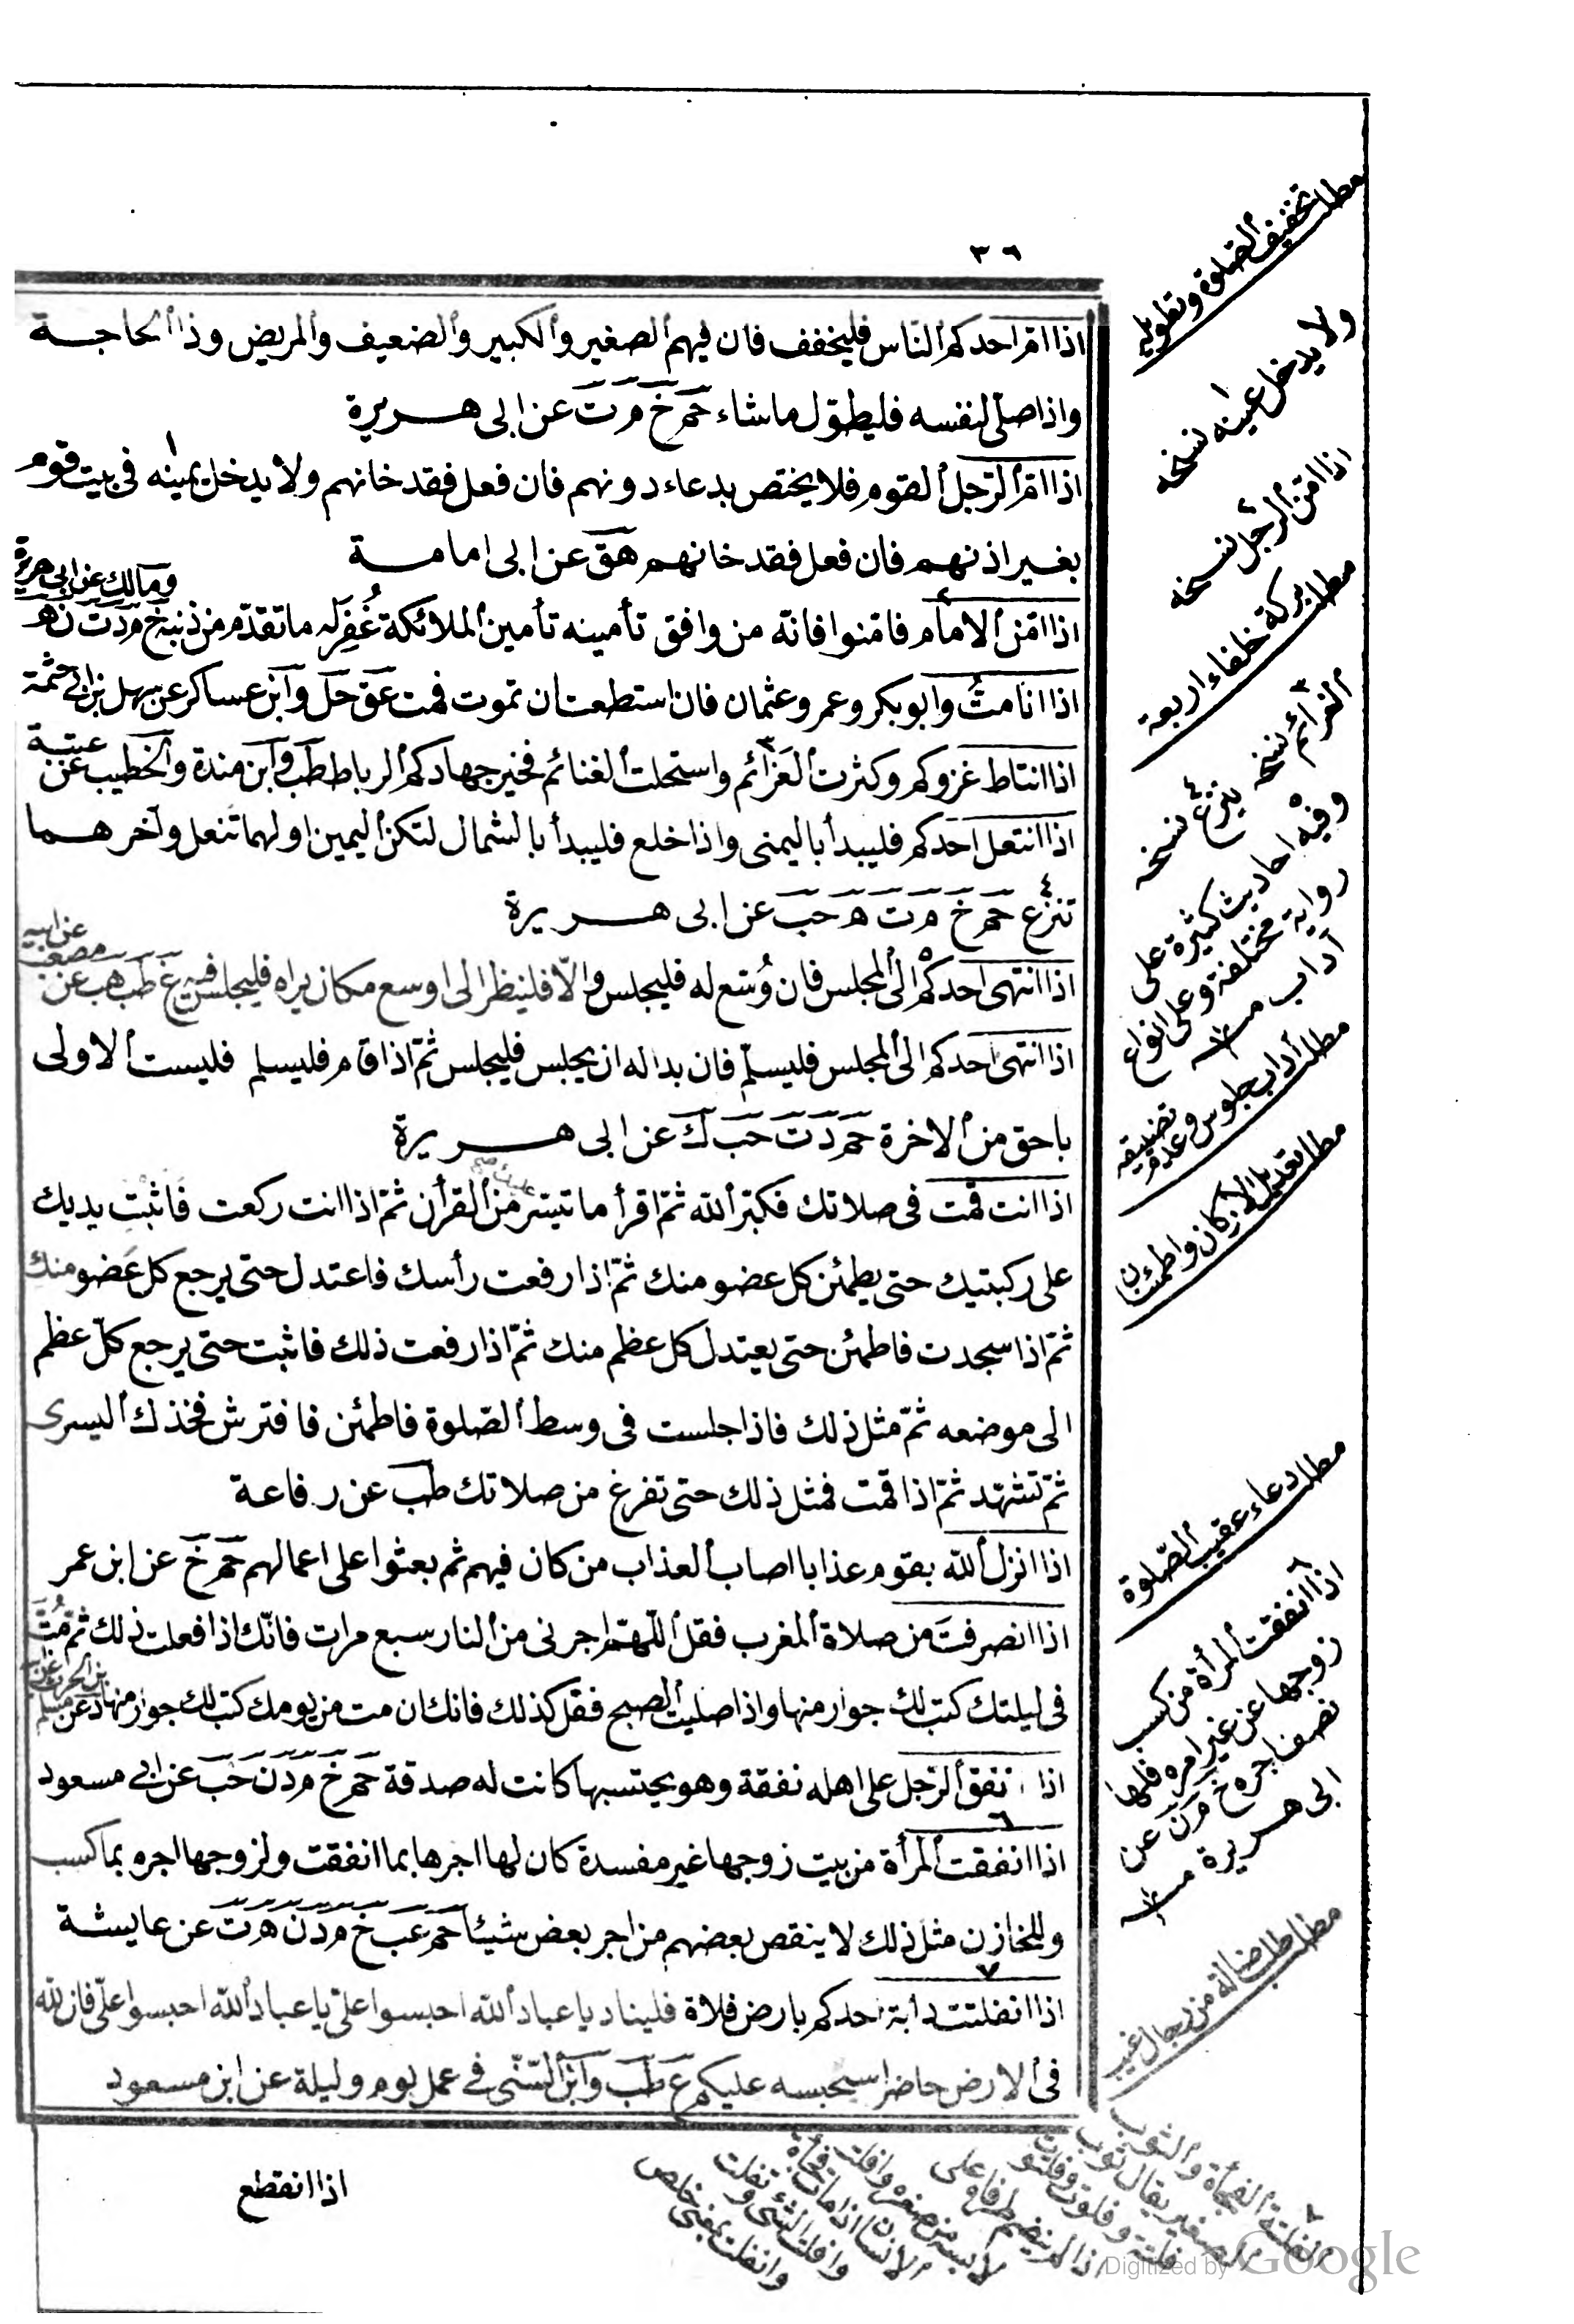 ٣٦
اذا امّ احدكم الناس فليخفف فان فيهم الصغير والكبير والضعيف والمريض وذا الحاجة
واذا صلى لنفسه فليطوّل ما شاء حم خ م ت عن ابى هريرة
اذا امّ الرّجل القوم فلا يختص بدعاء دونهم فان فعل فقد خانهم ولا يدخل يمينه فى بيت قوم
بغير اذنهم فان فعل فقد خانهم هق عن ابى امامة
اذا امّن الامام فامّنوا فانّه من وافق تأمينه تأمين الملائكة غُفِرَ له ما تقدّم من ذنبه خ م د ت ن ه
ومالك عن ابى هريرة
اذا انا متُّ وابو بكر وعمر وعثمان فان استطعت ان تموت فمت عق حل وابن عساكر عن سهل بن ابى حثمة
اذا انتاط غزوكم وكثرت العَزَائم واستحلت الغنائم فخير جهادكم الرباط طب وابن مندة والخطيب عن
عتبة
اذا انتعل احدكم فليبدأ باليمنى واذا خلع فليبدأ بالشمال لتكن اليمين اولهما تنعل وآخرهما
تنزع حم خ م ت ه حب عن ابى هريرة
اذا انتهى احدكم الى المجلس فان وُسّع له فليجلس والّا فلينظر الى اوسع مكان يراه فليجلس فيه غ طب هب عن
مصعب
عن ابيه
اذا انتهى احدكم الى المجلس فليسلّم فان بدا له ان يجلس فليجلس ثمّ اذا قام فليسلم فليست الاولى
باحق من الاخرة حم د ت حب ك عن ابى هريرة
اذا انت قمت فى صلاتك فكبّر الله ثمّ اقرأ ما تيسّر من القرآن ثمّ اذا انت ركعت فاثبت يديك
على ركبتيك حتى يطمئن كل عضو منك ثمّ اذا رفعت رأسك فاعتدل حتى يرجع كل عضو منك
ثمّ اذا سجدت فاطمئن حتى يعتدل كل عظم منك ثمّ اذا رفعت ذلك فاثبت حتى يرجع كلّ عظم
الى موضعه ثمّ مثل ذلك فاذا جلست فى وسط الصّلوة فاطمئن فافترش فخذك اليسرى
ثمّ تشهّد ثمّ اذا قمت فمثل ذلك حتى تفرغ من صلاتك طب عن رفاعة
اذا انزل الله بقوم عذابا اصاب العذاب من كان فيهم ثم بعثوا على اعمالهم حم خ عن ابن عمر
اذا انصرفتَ من صلاة المغرب فقل اللّهمّ اجرنى من النار سبع مرات فانّك اذا فعلت ذلك ثمّ مُتَّ
فى ليلتك كتب لك جوار منها واذا صليت الصبح فقل كذلك فانك ان مت من يومك كتب لك جوار منها د عن مسلم
بن الحرث عن ابيه
اذا انفق الرّجل على اهله نفقة وهو يحتسبها كانت له صدقة حم خ م د ن حب عن ابى مسعود
اذا انفقت المرأة من بيت زوجها غير مفسدة كان لها اجرها بما انفقت ولزوجها اجره بما كسب
وللخازن مثل ذلك لا ينقص بعضهم من اجر بعض شيئا حم عب خ م د ن ه ت عن عايشة
اذا انفلتت دابة احدكم بارض فلاة فليناد يا عباد الله احبسوا علىّ يا عباد الله احبسوا علىّ فان لله
فى الارض حاضرا سيحبسه عليكم ع طب وابن السّنّى فى عمل يوم وليلة عن ابن مسعود
اذا انقطع
مطلب تخفيف الصلوة وتطويله
ولا يدخل عينه نسخه
اذا امّن الرجل نسخه
مطلب بركة خلفاء اربعة
الغرائم نسخه
ينزع نسخه
وفيه احاديث كثيرة على
رواية مختلفة وعلى انواع
آداب
مطلب آداب جلوس وعدم تضييقه
مطلب تعديل الاركان واطمئنان
مطلب دعاء عقيب الصّلوة
اذا انفقت المرأة من كسب
زوجها عن غير امره فلها
نصف اجره خ م ن عن
ابى هريرة
مطلب طلب ضالة من رجال غيب
Digitized by Google